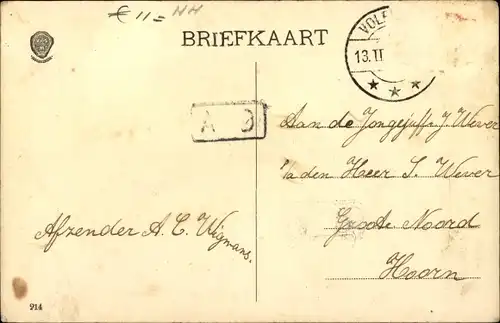 € 11 = NH
BRIEFKAART
VOL
13.II
A 9
Aan de Jongejuffr. J. Wever
p/a den Heer S. Wever
Groote Noord
Hoorn
Afzender A. C. Wigmans.
214